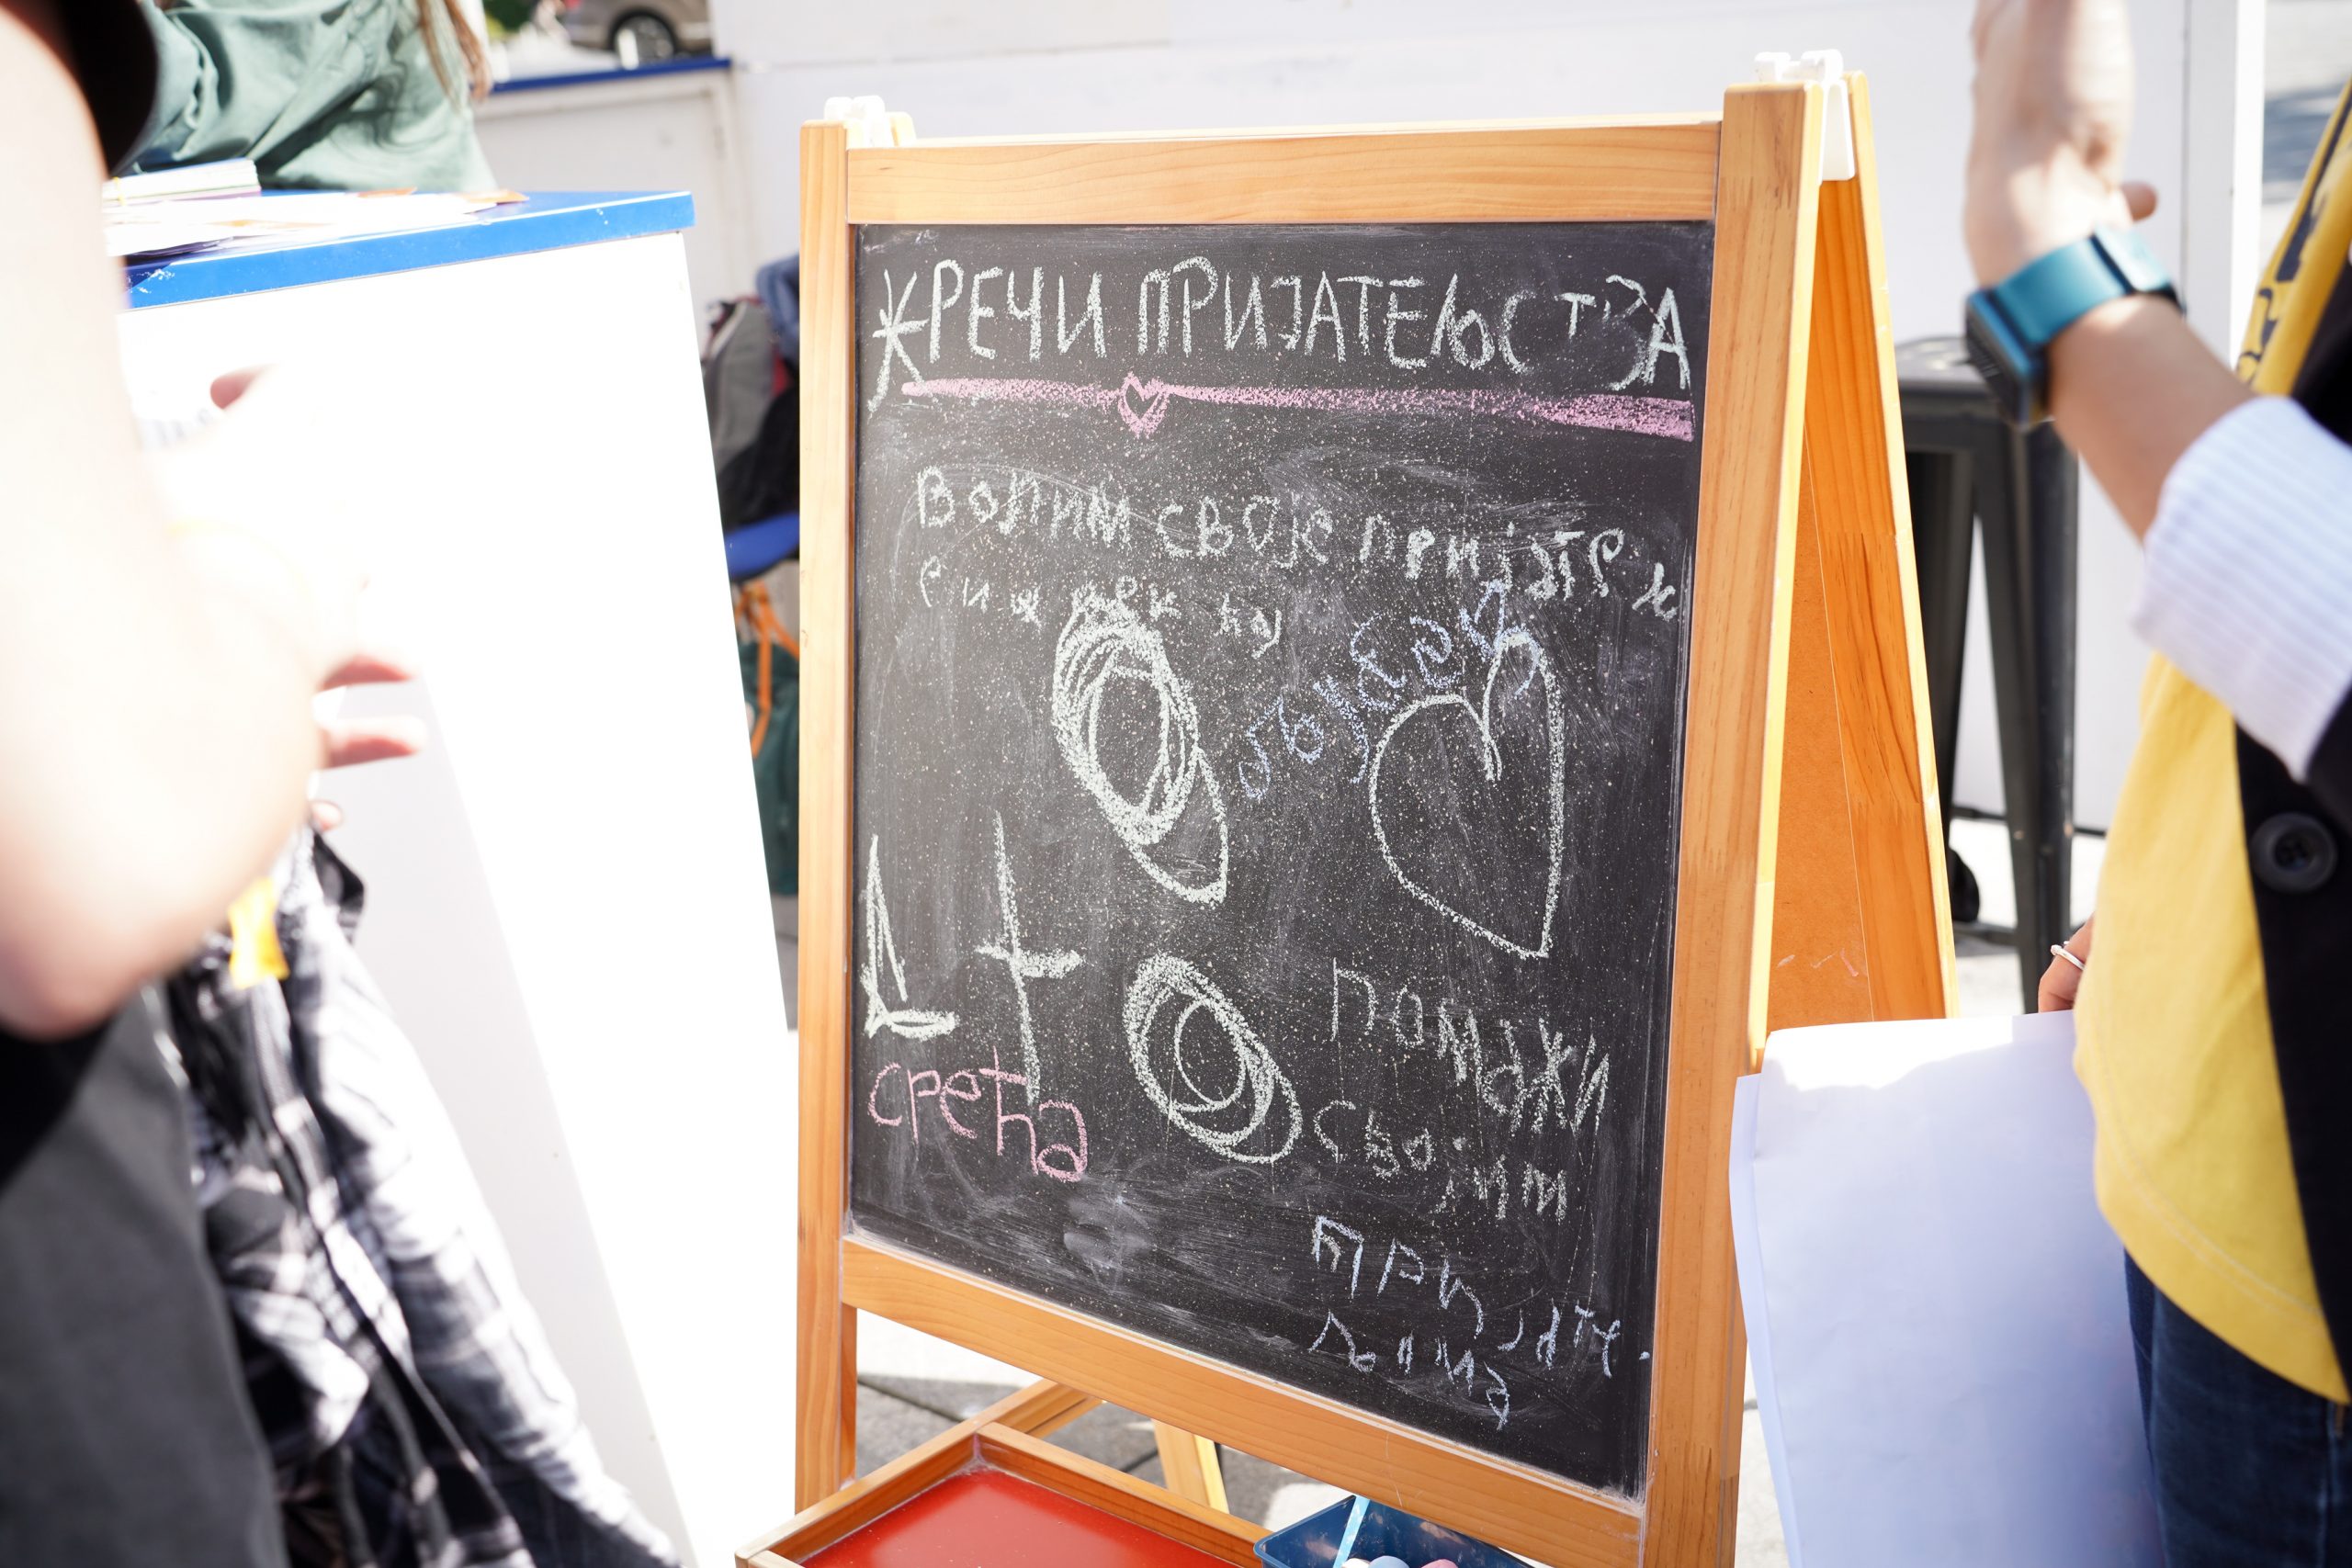 ЖРЕЧИ ПРИЈАТЕЉСТВА
Волим своје пријатељ
љубав
срећа
помажи
својим
пријате
љима